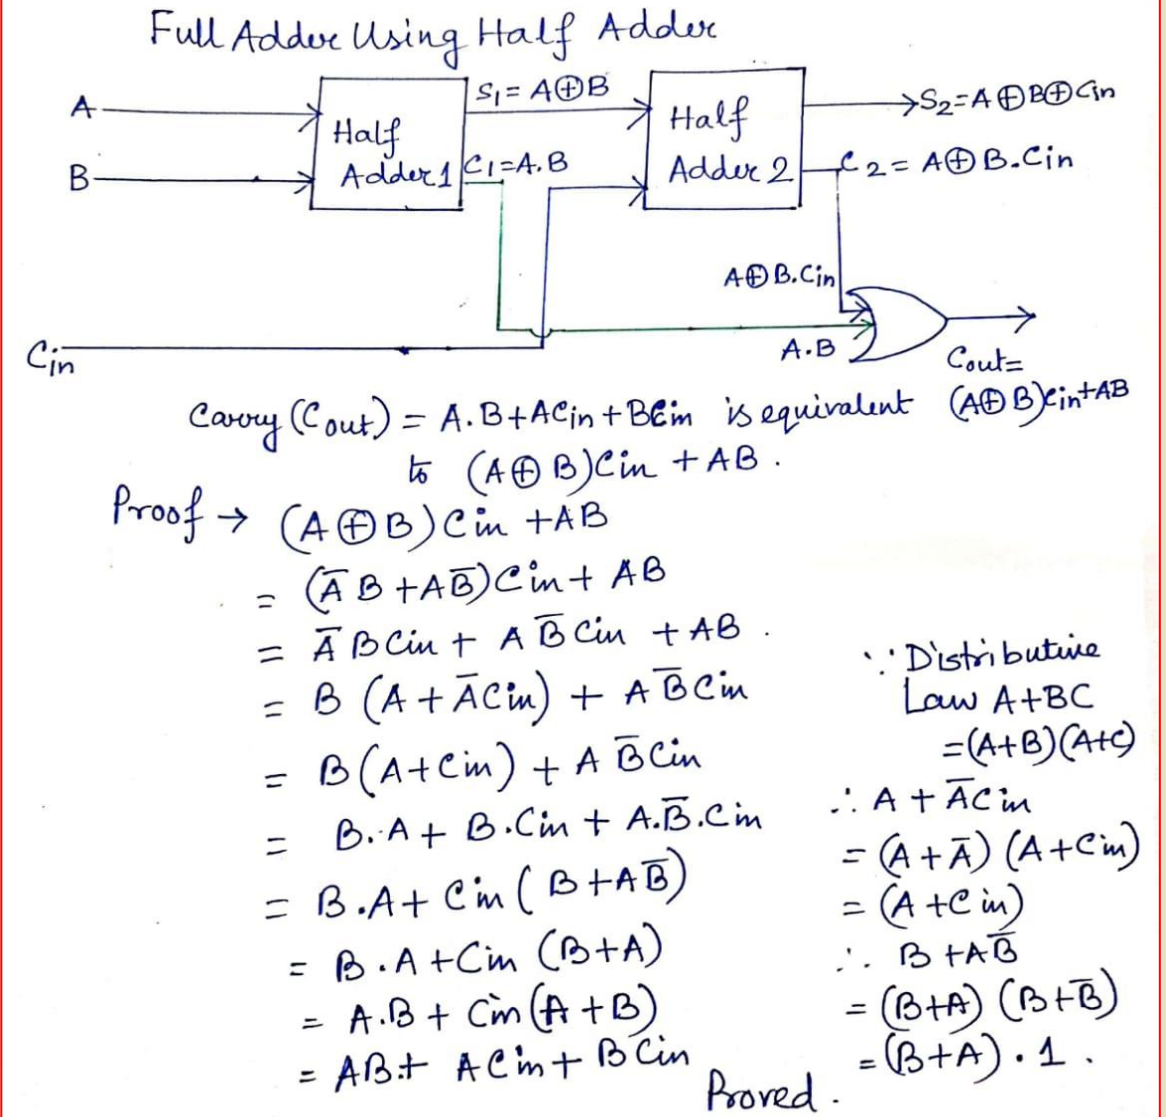 Full Adder Using Half Adder
A
B
Half
Adder 1
S₁ = A⊕B
C₁=A.B
Half
Adder 2
S₂=A⊕B⊕Cin
C₂ = A⊕B.Cin
A⊕B.Cin
A.B
Cin
Cout=
(A⊕B)Cin+AB
Carry (Cout) = A.B+ACin+BCin is equivalent
to (A⊕B)Cin + AB.
Proof → (A⊕B)Cin +AB
= (A̅B+AB̅)Cin+ AB
= A̅BCin + AB̅Cin + AB.
= B (A+A̅Cin) + AB̅Cin
= B(A+Cin) + AB̅Cin
= B.A + B.Cin + A.B̅.Cin
= B.A+ Cin (B+AB̅)
= B.A+Cin (B+A)
= A.B + Cin(A+B)
= AB+ ACin+ BCin
Proved.
∵ Distributive
Law A+BC
=(A+B)(A+C)
∴ A + A̅Cin
= (A+A̅) (A+Cin)
= (A+Cin)
∴ B+AB̅
= (B+A) (B+B̅)
= (B+A).1.